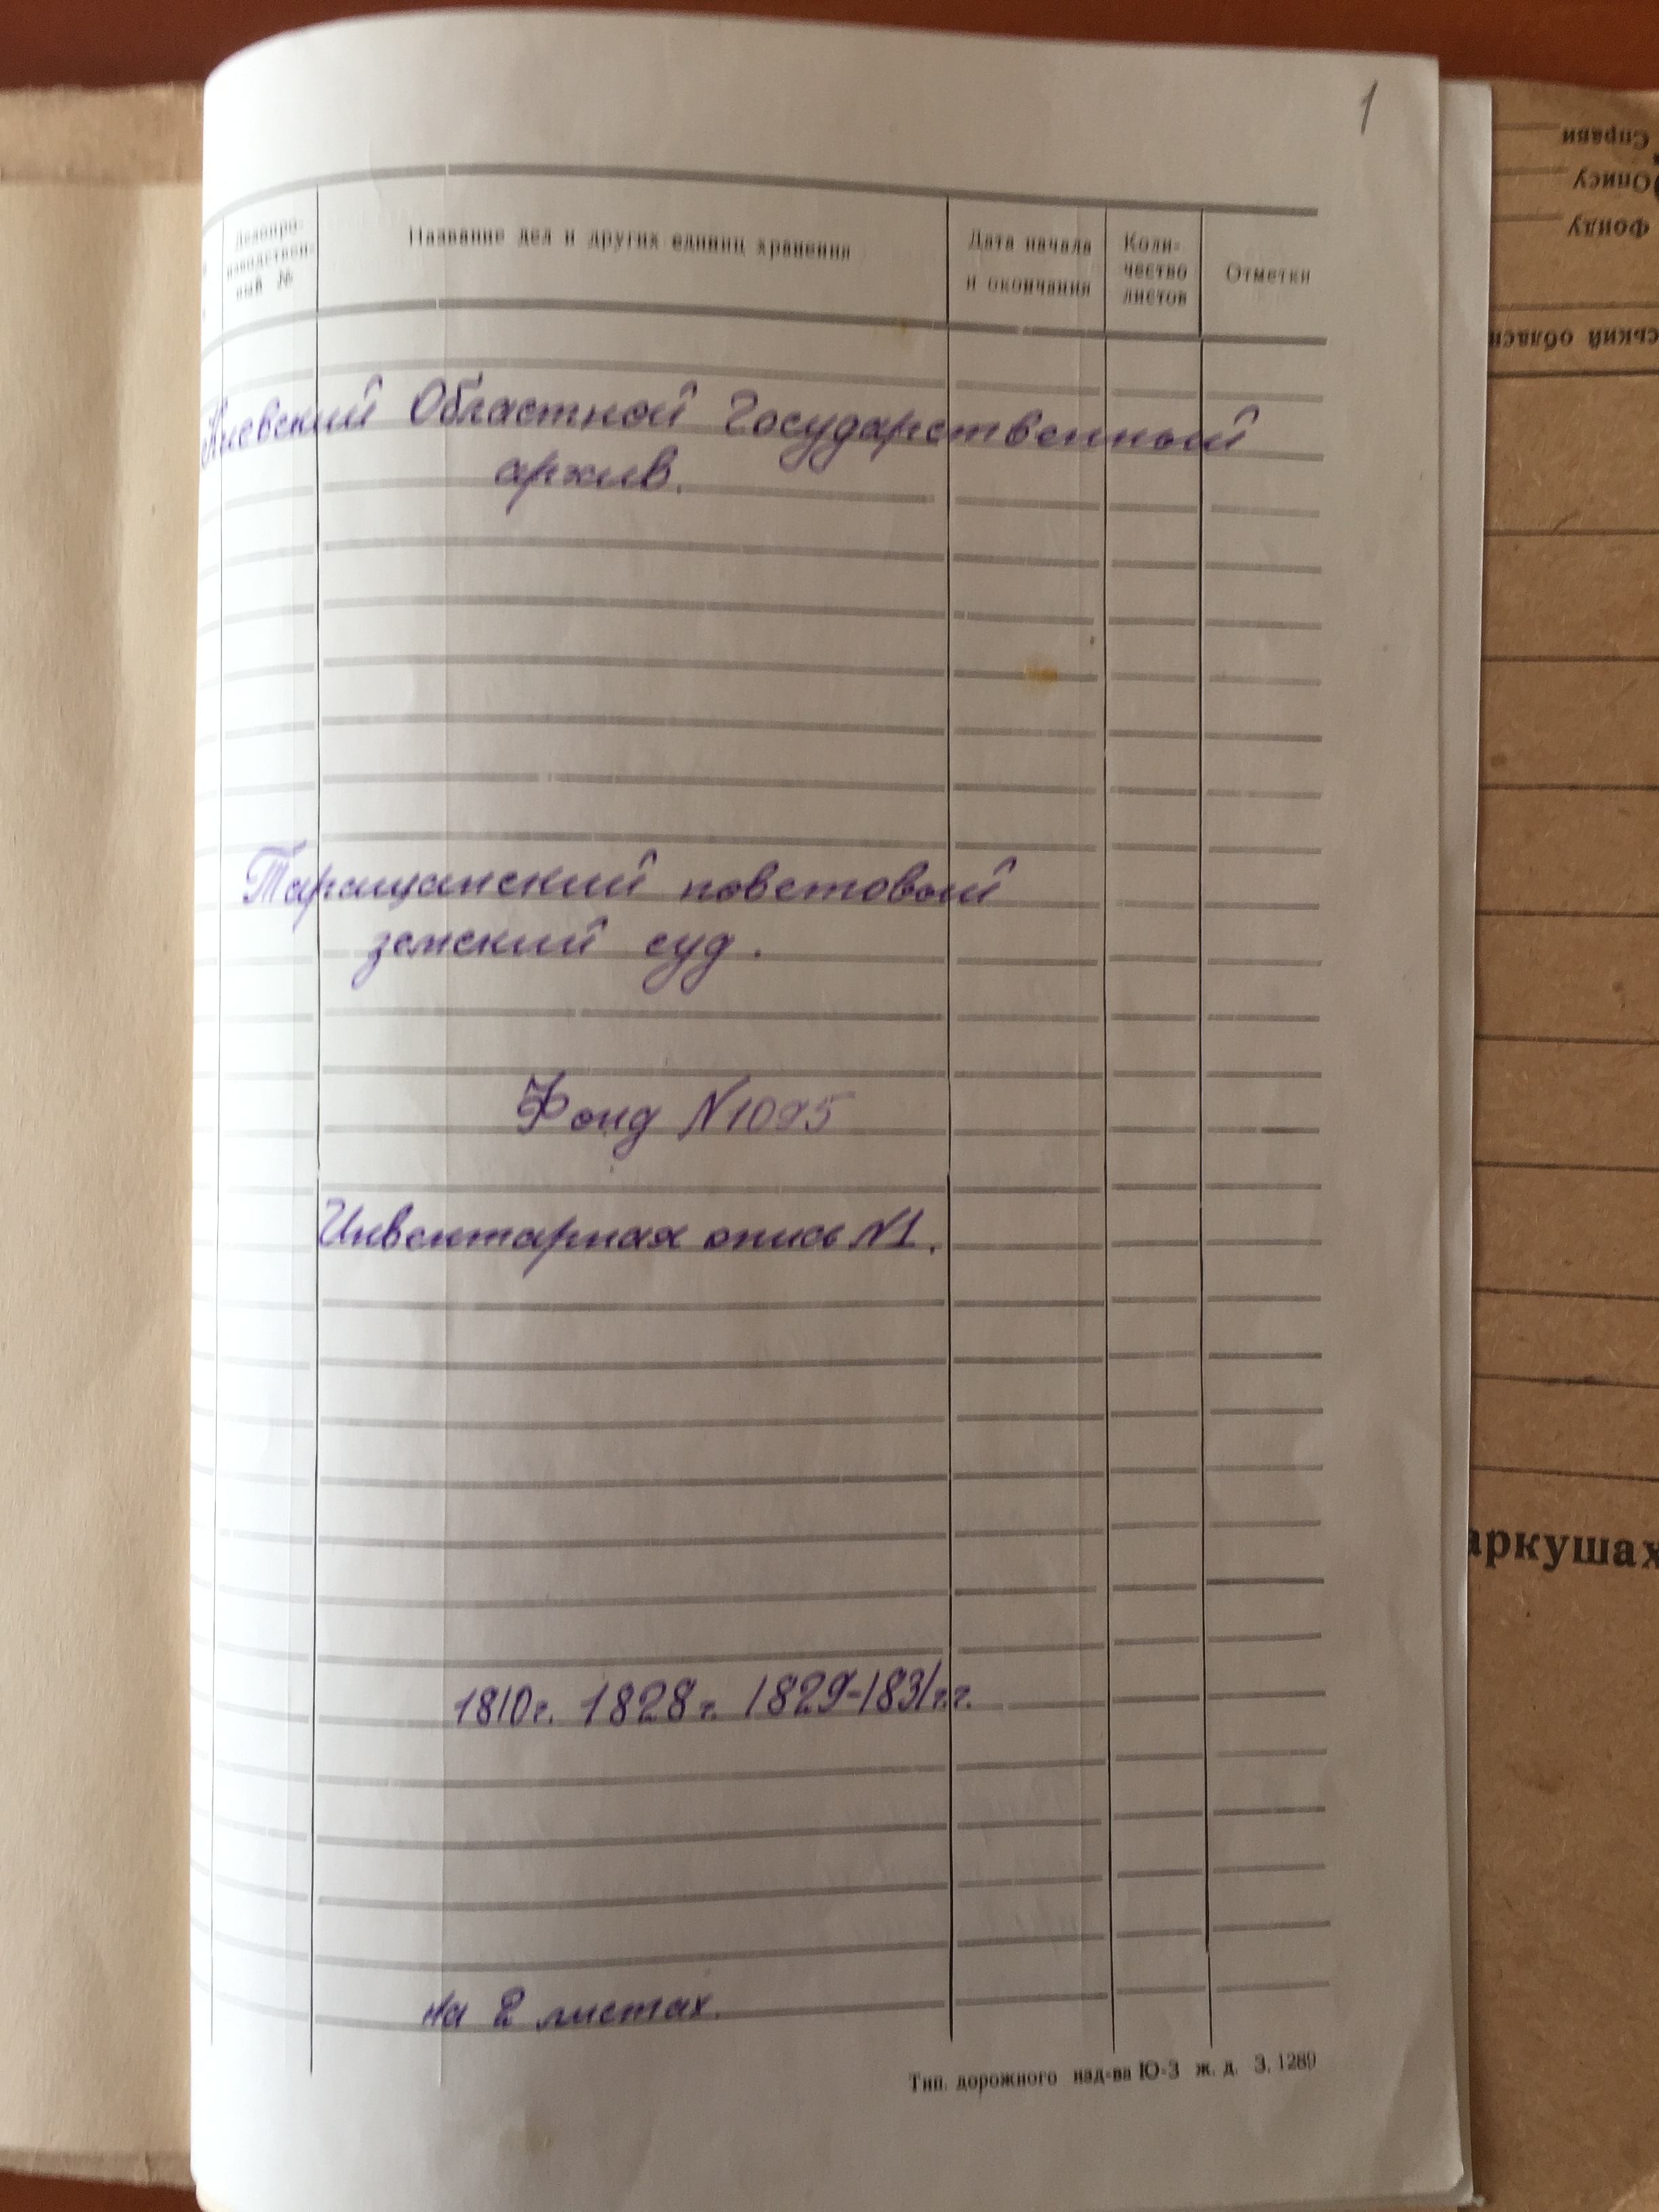 1
Делопро-
изводствен-
ный №
Название дел и других единиц хранения
Дата начала
и окончания
Коли-
чество
листов
Отметки
Киевский Областной Государственный
архив.
Таращанский поветовый
земский суд.
Фонд N1095
Инвентарная опись N1.
1810г. 1828г. 1829-1831г.г.
на 2 листах.
Тип. дорожного изд-ва Ю-З ж. д. З. 1289
Справи
Опису
Фонду
аркушах